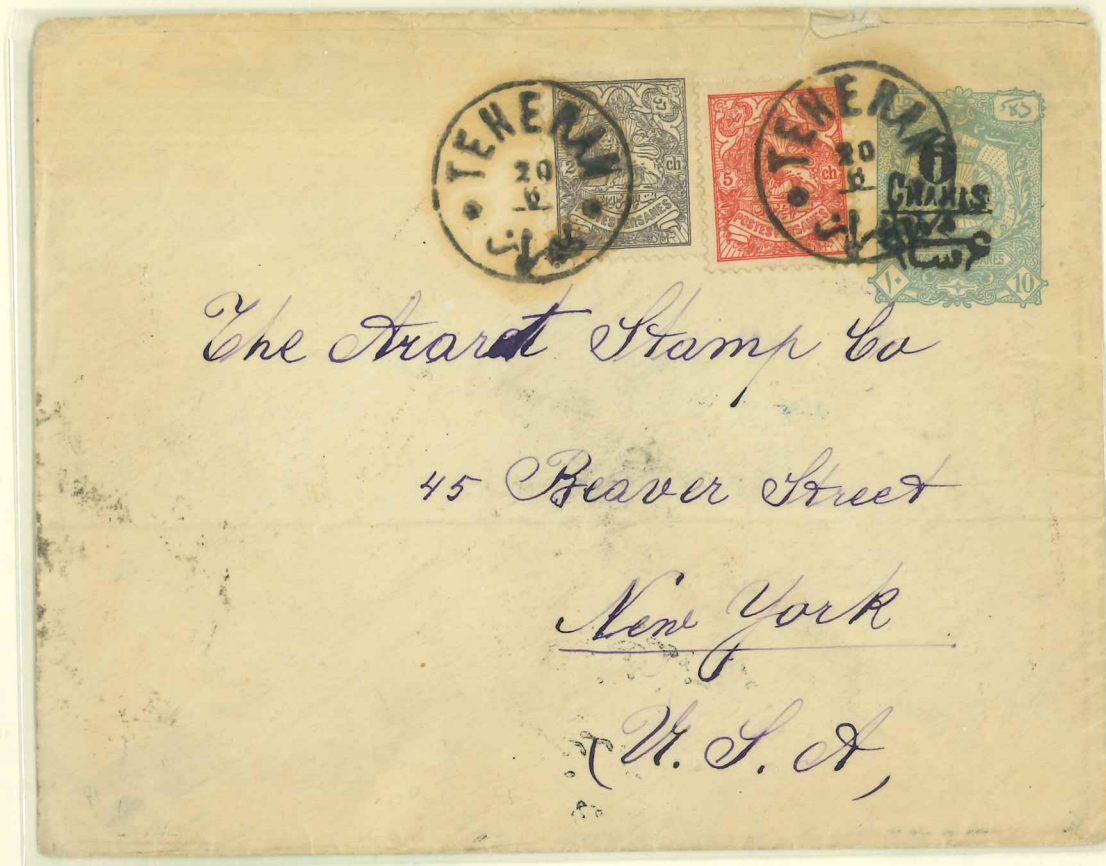 TEHERAN
20
طهران
2 ch
POSTES PERSANES
5 ch
POSTES PERSANES
TEHERAN
20
طهران
6
CHAHIS
۱۰ 10
The Ararat Stamp Co
45 Beaver Street
New York
(U. S. A,